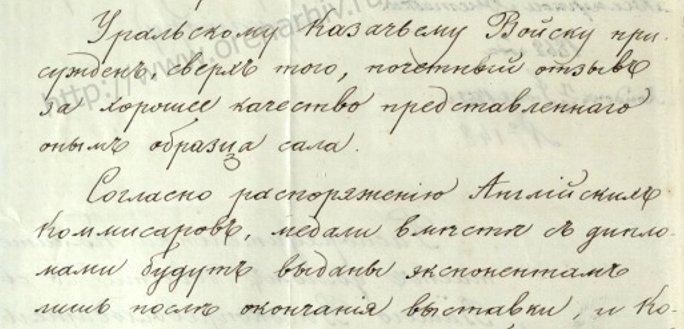 Уральскому Казачьему Войску при-
сужденъ, сверхъ того, почетный отзывъ
за хорошее качество представленнаго
онымъ образца сала.
Согласно распоряженію Англійскихъ
Коммисаровъ, медали вмѣстѣ съ дипло-
мами будутъ выданы экспонентамъ
лишь послѣ окончанія выставки, и Ко-